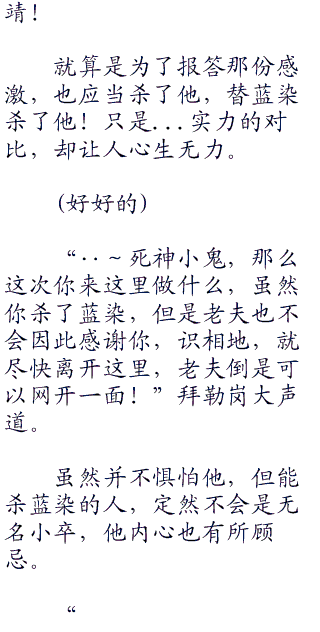 靖！
就算是为了报答那份感
激，也应当杀了他，替蓝染
杀了他！只是...实力的对
比，却让人心生无力。
(好好的)
“··～死神小鬼，那么
这次你来这里做什么，虽然
你杀了蓝染，但是老夫也不
会因此感谢你，识相地，就
尽快离开这里，老夫倒是可
以网开一面！”拜勒岗大声
道。
虽然并不惧怕他，但能
杀蓝染的人，定然不会是无
名小卒，他内心也有所顾
忌。
“